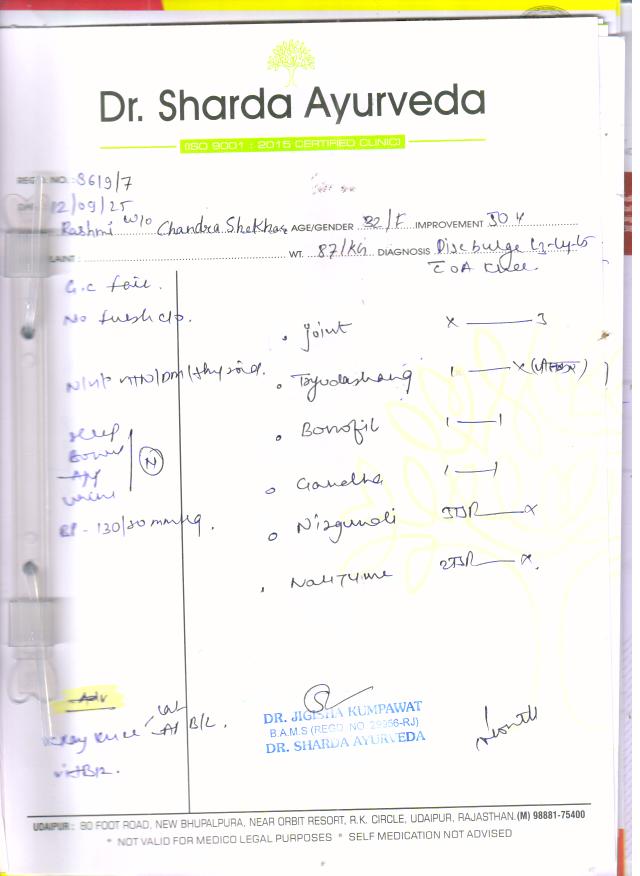 Dr. Sharda Ayurveda
(ISO 9001 : 2015 CERTIFIED CLINIC)
NO. 8619/7
12/09/25
Rashmi W/o Chandra Shekhar AGE/GENDER 32/F IMPROVEMENT
WT. 87/KG DIAGNOSIS Disc bulge L3-L4-L5
c OA Knee.
G.C fair.
No fresh c/o.
Joint x — 3
N/H/o HTN/DM/thyroid.
Tryodashang 1 — x
Sleep
Bowel
App
Urine
(N)
Bonofit 1 — 1
Gandha 1 — 1
BP - 130/80 mmHg.
Nirgundi — x
— x.
Adv
X-Ray knee Lat AP B/L.
vit B12.
DR. JIGISHA KUMPAWAT
B.A.M.S (REGD. NO. 29356-RJ)
DR. SHARDA AYURVEDA
UDAIPUR : 80 FOOT ROAD, NEW BHUPALPURA, NEAR ORBIT RESORT, R.K. CIRCLE, UDAIPUR, RAJASTHAN. (M) 98881-75400
* NOT VALID FOR MEDICO LEGAL PURPOSES * SELF MEDICATION NOT ADVISED